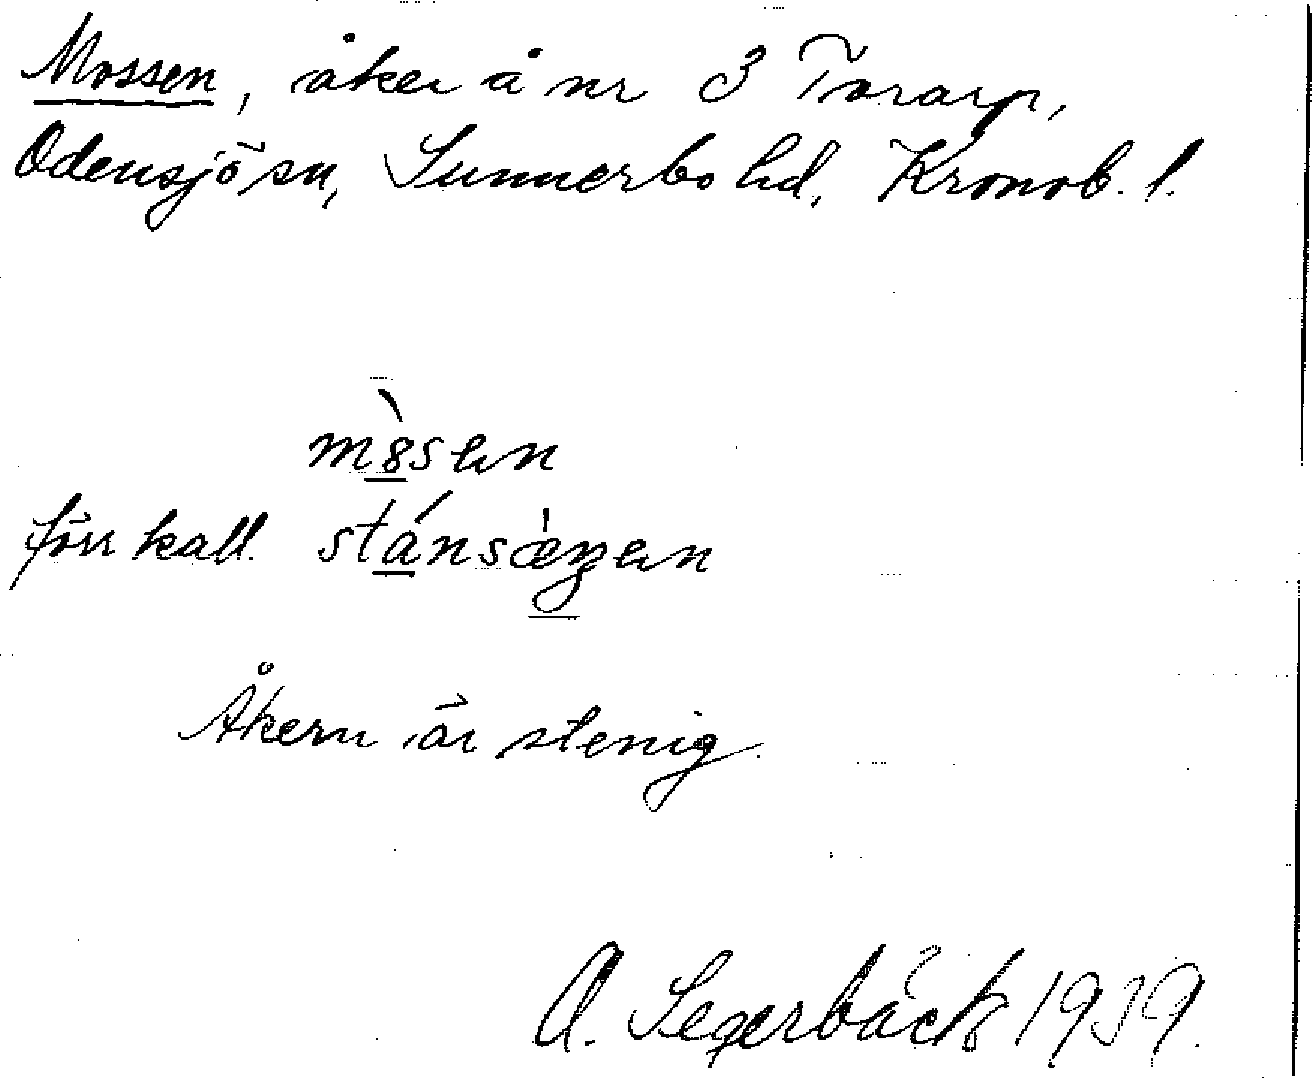 Mossen, åker å nr 3 Torarp,
Odensjö sn, Sunnerbo hd, Kronob. l.
m8̀sen
förr kall. stánsæ̀gen
Åkern är stenig.
A. Segerbäck 1939.